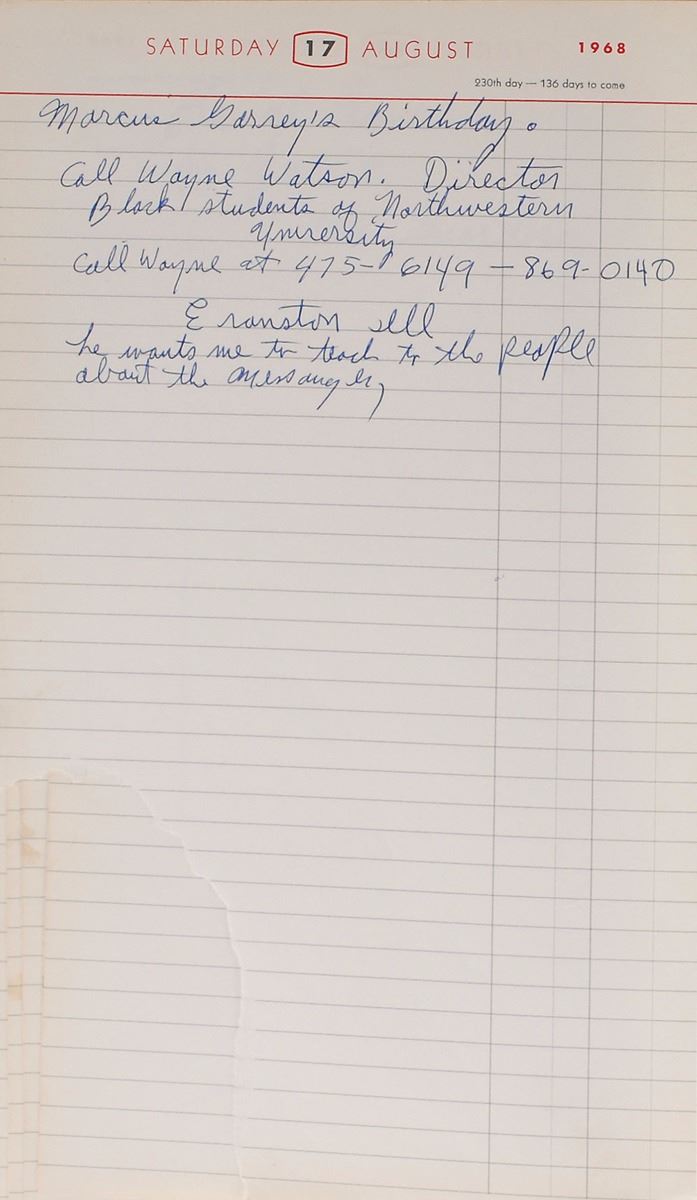 SATURDAY 17 AUGUST 1968
230th day — 136 days to come
Marcus Garvey's Birthday.
Call Wayne Watson. Director
Black students of Northwestern
University
Call Wayne at 475-6149 — 869-0140
Evanston Ill
he wants me to teach to the people
about the Messanger,